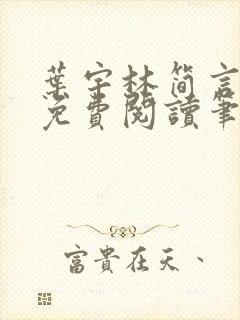 葉宇林简言
免費閱讀筆
富貴在天、